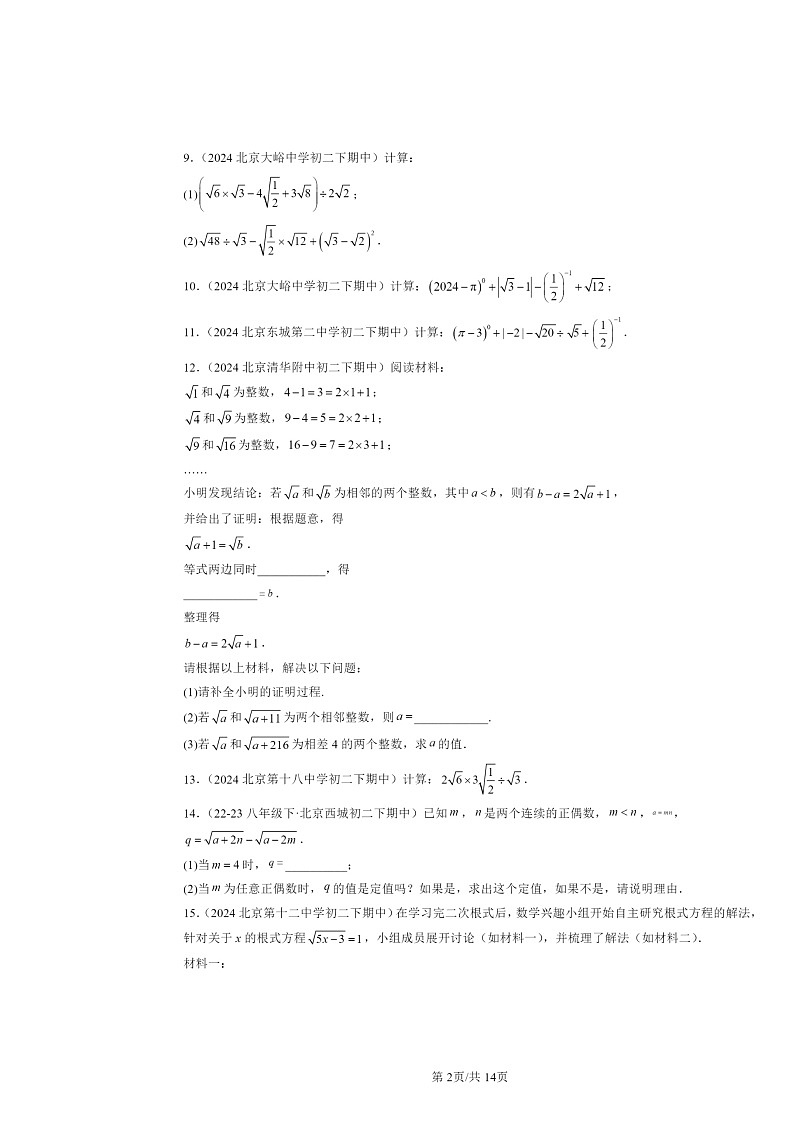 9.（2024 北京大峪中学初二下期中）计算：
(1)(√6×√3−4√(1/2)+3√8)÷2√2；
(2)√48÷√3−√(1/2)×√12+(√3−√2)²．
10.（2024 北京大峪中学初二下期中）计算：(2024−π)⁰+|√3−1|−(1/2)⁻¹+√12；
11.（2024 北京东城第二中学初二下期中）计算：(π−3)⁰+|−2|−√20÷√5+(1/2)⁻¹．
12.（2024 北京清华附中初二下期中）阅读材料：
√1和√4为整数，4−1=3=2×1+1；
√4和√9为整数，9−4=5=2×2+1；
√9和√16为整数，16−9=7=2×3+1；
……
小明发现结论：若√a和√b为相邻的两个整数，其中a<b，则有b−a=2√a+1，
并给出了证明：根据题意，得
√a+1=√b．
等式两边同时___________，得
____________=b．
整理得
b−a=2√a+1．
请根据以上材料，解决以下问题；
(1)请补全小明的证明过程.
(2)若√a和√(a+11)为两个相邻整数，则a=____________.
(3)若√a和√(a+216)为相差 4 的两个整数，求a的值．
13.（2024 北京第十八中学初二下期中）计算：2√6×3√(1/2)÷√3．
14.（22-23 八年级下·北京西城初二下期中）已知m，n是两个连续的正偶数，m<n，a=mn，
q=√(a+2n)−√(a−2m)．
(1)当m=4时，q=__________；
(2)当m为任意正偶数时，q的值是定值吗？如果是，求出这个定值，如果不是，请说明理由．
15.（2024 北京第十二中学初二下期中）在学习完二次根式后，数学兴趣小组开始自主研究根式方程的解法，
针对关于 x 的根式方程√(5x−3)=1，小组成员展开讨论（如材料一），并梳理了解法（如材料二）．
材料一：
第 2页/共 14页